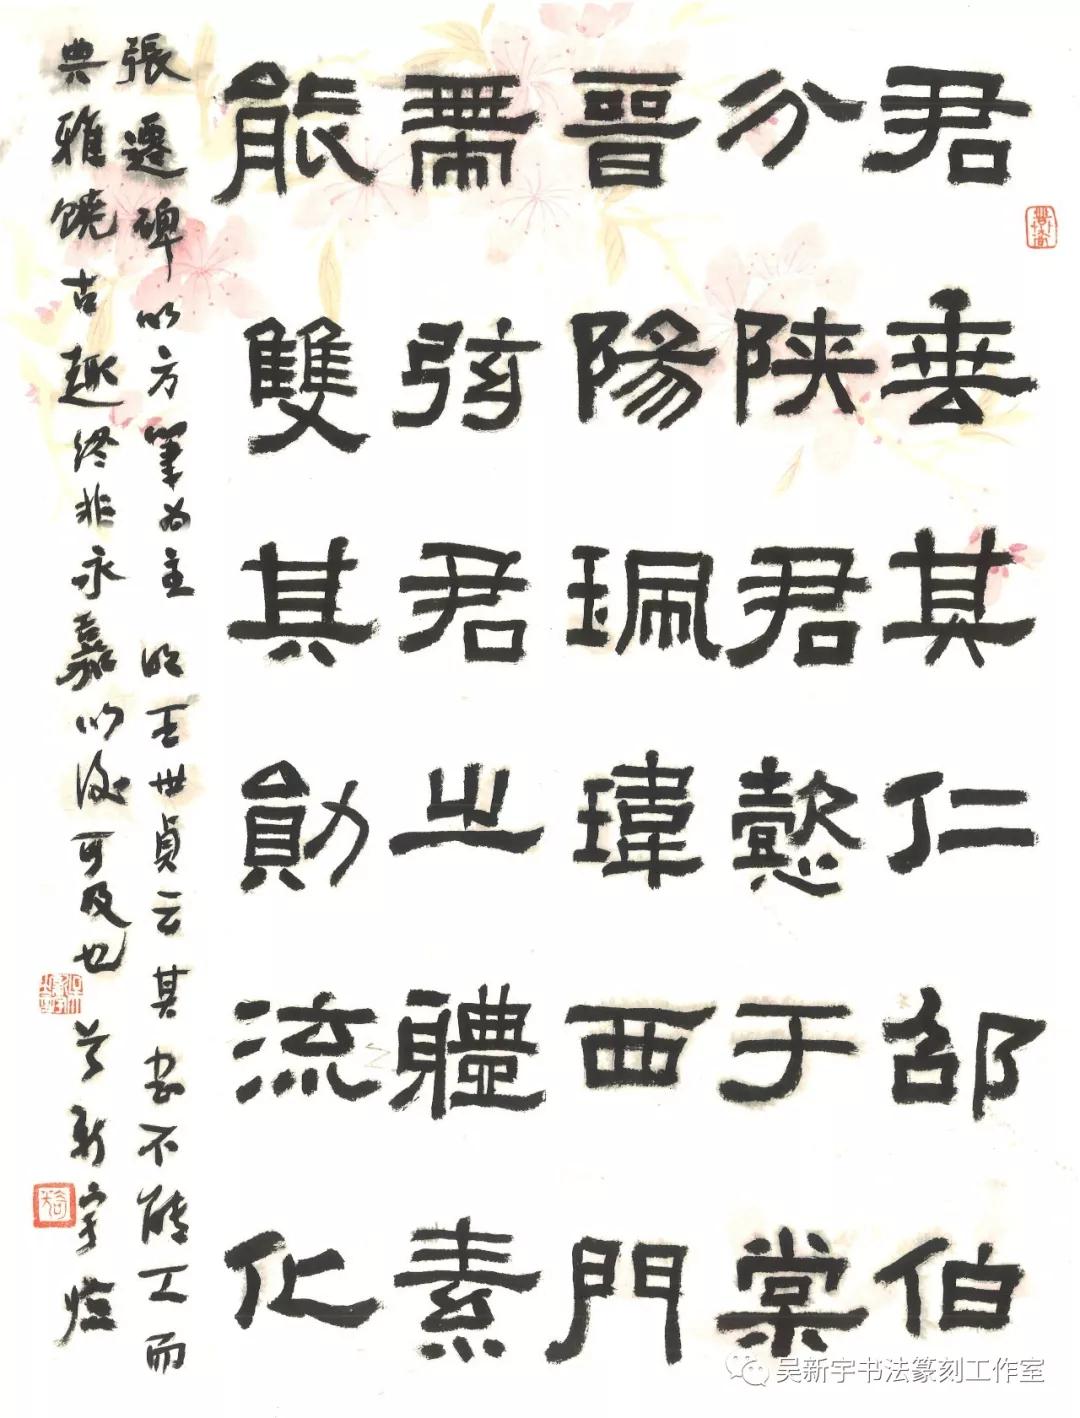 君垂其仁邵伯
分陕君懿于棠
晉陽珮瑋西門
帶弦君之體素
能雙其勛流化
張遷碑以方筆為主 明王世貞云其書不能工而
典雅饒古趣終非永嘉以後可及也 吴新宇臨
吴新宇书法篆刻工作室